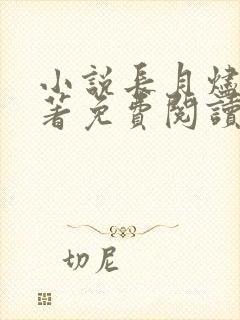 小說長月燼
著免費閱讀
切尼